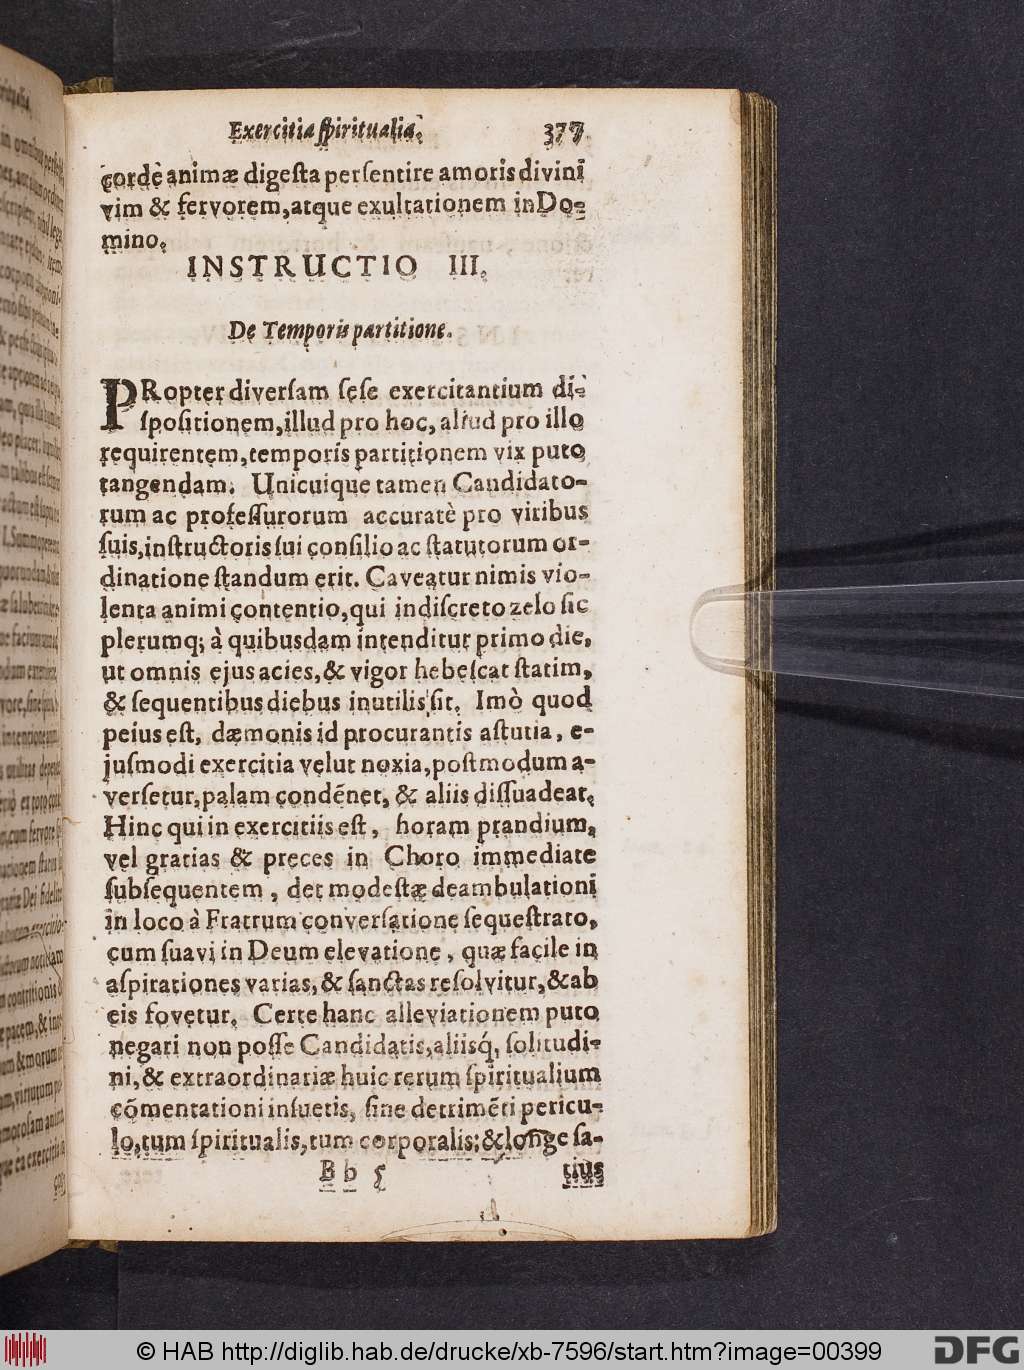 Exercitia spiritualia. 377
corde animæ digesta persentire amoris divini
vim & fervorem, atque exultationem in Do-
mino.
INSTRUCTIO III.
De Temporis partitione.
PRopter diversam sese exercitantium di-
spositionem, illud pro hoc, aliud pro illo
requirentem, temporis partitionem vix puto
tangendam. Unicuique tamen Candidato-
rum ac professurorum accuratè pro viribus
suis, instructoris sui consilio ac statutorum or-
dinatione standum erit. Caveatur nimis vio-
lenta animi contentio, qui indiscreto zelo sic
plerumq; à quibusdam intenditur primo die,
ut omnis ejus acies, & vigor hebescat statim,
& sequentibus diebus inutilis sit. Imò quod
peius est, dæmonis id procurantis astutia, e-
jusmodi exercitia velut noxia, postmodum a-
versetur, palam condēnet, & aliis dissuadeat.
Hinc qui in exercitiis est, horam prandium,
vel gratias & preces in Choro immediate
subsequentem, det modestæ deambulationi
in loco à Fratrum conversatione sequestrato,
cum suavi in Deum elevatione, quæ facile in
aspirationes varias, & sanctas resolvitur, & ab
eis fovetur. Certe hanc alleviationem puto
negari non posse Candidatis, aliisq́, solitudi-
ni, & extraordinariæ huic rerum spiritualium
cōmentationi insuetis, sine detrimēti pericu-
lo, tum spiritualis, tum corporalis; & longe sa-
Bb 5 tius
© HAB http://diglib.hab.de/drucke/xb-7596/start.htm?image=00399
DFG